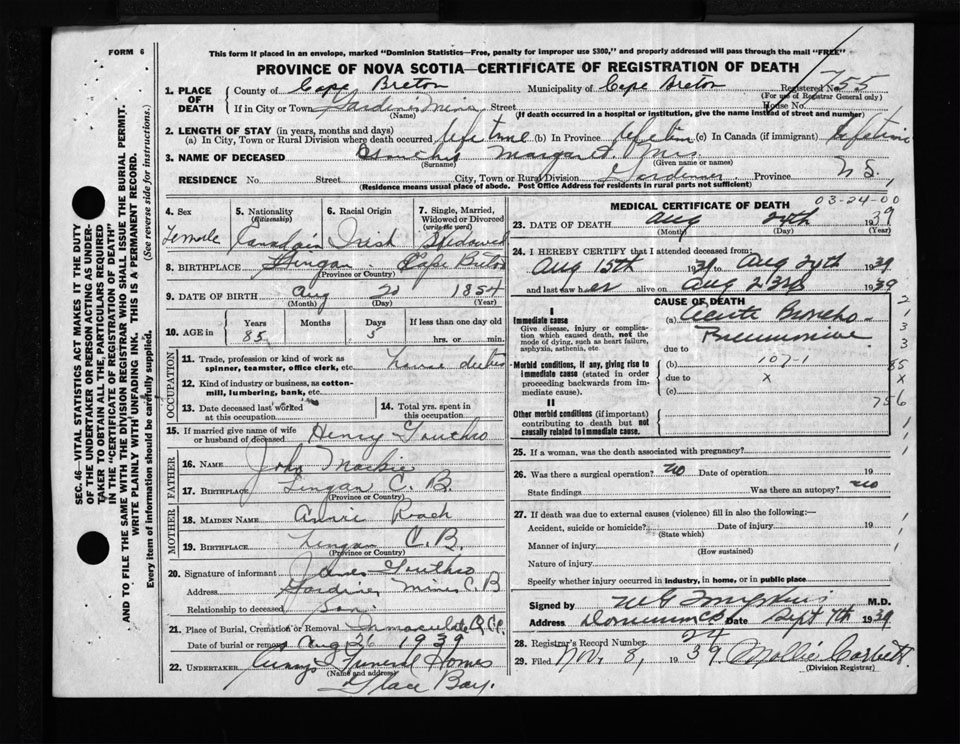 FORM 6
This form if placed in an envelope, marked "Dominion Statistics—Free, penalty for improper use $300," and properly addressed will pass through the mail "FREE"
PROVINCE OF NOVA SCOTIA—CERTIFICATE OF REGISTRATION OF DEATH
1. PLACE OF DEATH
County of Cape Breton Municipality of Cape Breton Registered No. 755
(For use of Registrar General only)
If in City or Town Gardiner Mines Street House No.
(Name) (If death occurred in a hospital or institution, give the name instead of street and number)
2. LENGTH OF STAY (in years, months and days)
(a) In City, Town or Rural Division where death occurred lifetime (b) In Province lifetime (c) In Canada (if immigrant) lifetime
3. NAME OF DECEASED Margaret Mrs
(Surname) (Given name or names)
RESIDENCE No. Street City, Town or Rural Division Gardiner Province N S.
(Residence means usual place of abode. Post Office Address for residents in rural parts not sufficient)
4. Sex Female
5. Nationality (Citizenship) Canadain
6. Racial Origin Irish
7. Single, Married, Widowed or Divorced (write the word) Widowed
8. BIRTHPLACE Lingan. Cape Breton
(Province or Country)
9. DATE OF BIRTH Aug 20 1854
(Month) (Day) (Year)
10. AGE in Years Months Days If less than one day old
85 5 hrs. or min.
OCCUPATION
11. Trade, profession or kind of work as spinner, teamster, office clerk, etc. house duties
12. Kind of industry or business, as cotton-mill, lumbering, bank, etc.
13. Date deceased last worked at this occupation
14. Total yrs. spent in this occupation
15. If married give name of wife or husband of deceased Henry Gouthro
FATHER
16. Name John Mackie
17. Birthplace Lingan C. B.
(Province or Country)
MOTHER
18. Maiden Name Annie Roach
19. Birthplace Lingan C. B.
(Province or Country)
20. Signature of informant James Gouthro
Address Gardiner Mines C. B
Relationship to deceased Son.
21. Place of Burial, Cremation or Removal Immaculate
Date of burial or removal Aug 26 1939
22. UNDERTAKER Funeral Homes
(Name and address)
Glace Bay.
MEDICAL CERTIFICATE OF DEATH
03-24-00
23. DATE OF DEATH Aug 24th 1939
(Month) (Day) (Year)
24. I HEREBY CERTIFY that I attended deceased from:
Aug 15th 1939 to Aug 24th 1939
and last saw her alive on Aug 23rd 1939
CAUSE OF DEATH
I
Immediate cause
Give disease, injury or complication which caused death, not the mode of dying, such as heart failure, asphyxia, asthenia, etc.
(a) Acute Broncho-Pneumonia
due to
Morbid conditions, if any, giving rise to immediate cause (stated in order proceeding backwards from immediate cause).
(b) 107-1
due to x
(c)
II
Other morbid conditions (if important) contributing to death but not causally related to immediate cause.
2
1
3
3
85
x
756
25. If a woman, was the death associated with pregnancy?
26. Was there a surgical operation? no Date of operation 19
State findings Was there an autopsy? no
27. If death was due to external causes (violence) fill in also the following:—
Accident, suicide or homicide? Date of injury 19
(State which)
Manner of injury
(How sustained)
Nature of injury
Specify whether injury occurred in industry, in home, or in public place
Signed by M.D.
Address Dominion C B Date Sept 7th 1939
28. Registrar's Record Number 24
29. Filed Nov. 8, 1939. Mollie Corbett
(Division Registrar)
SEC. 46—VITAL STATISTICS ACT MAKES IT THE DUTY
OF THE UNDERTAKER OR PERSON ACTING AS UNDER-
TAKER TO OBTAIN ALL THE PARTICULARS REQUIRED
IN THE "CERTIFICATE OF REGISTRATION OF DEATH"
AND TO FILE THE SAME WITH THE DIVISION REGISTRAR WHO SHALL ISSUE THE BURIAL PERMIT.
WRITE PLAINLY WITH UNFADING INK. THIS IS A PERMANENT RECORD.
Every item of information should be carefully supplied. (See reverse side for instructions.)